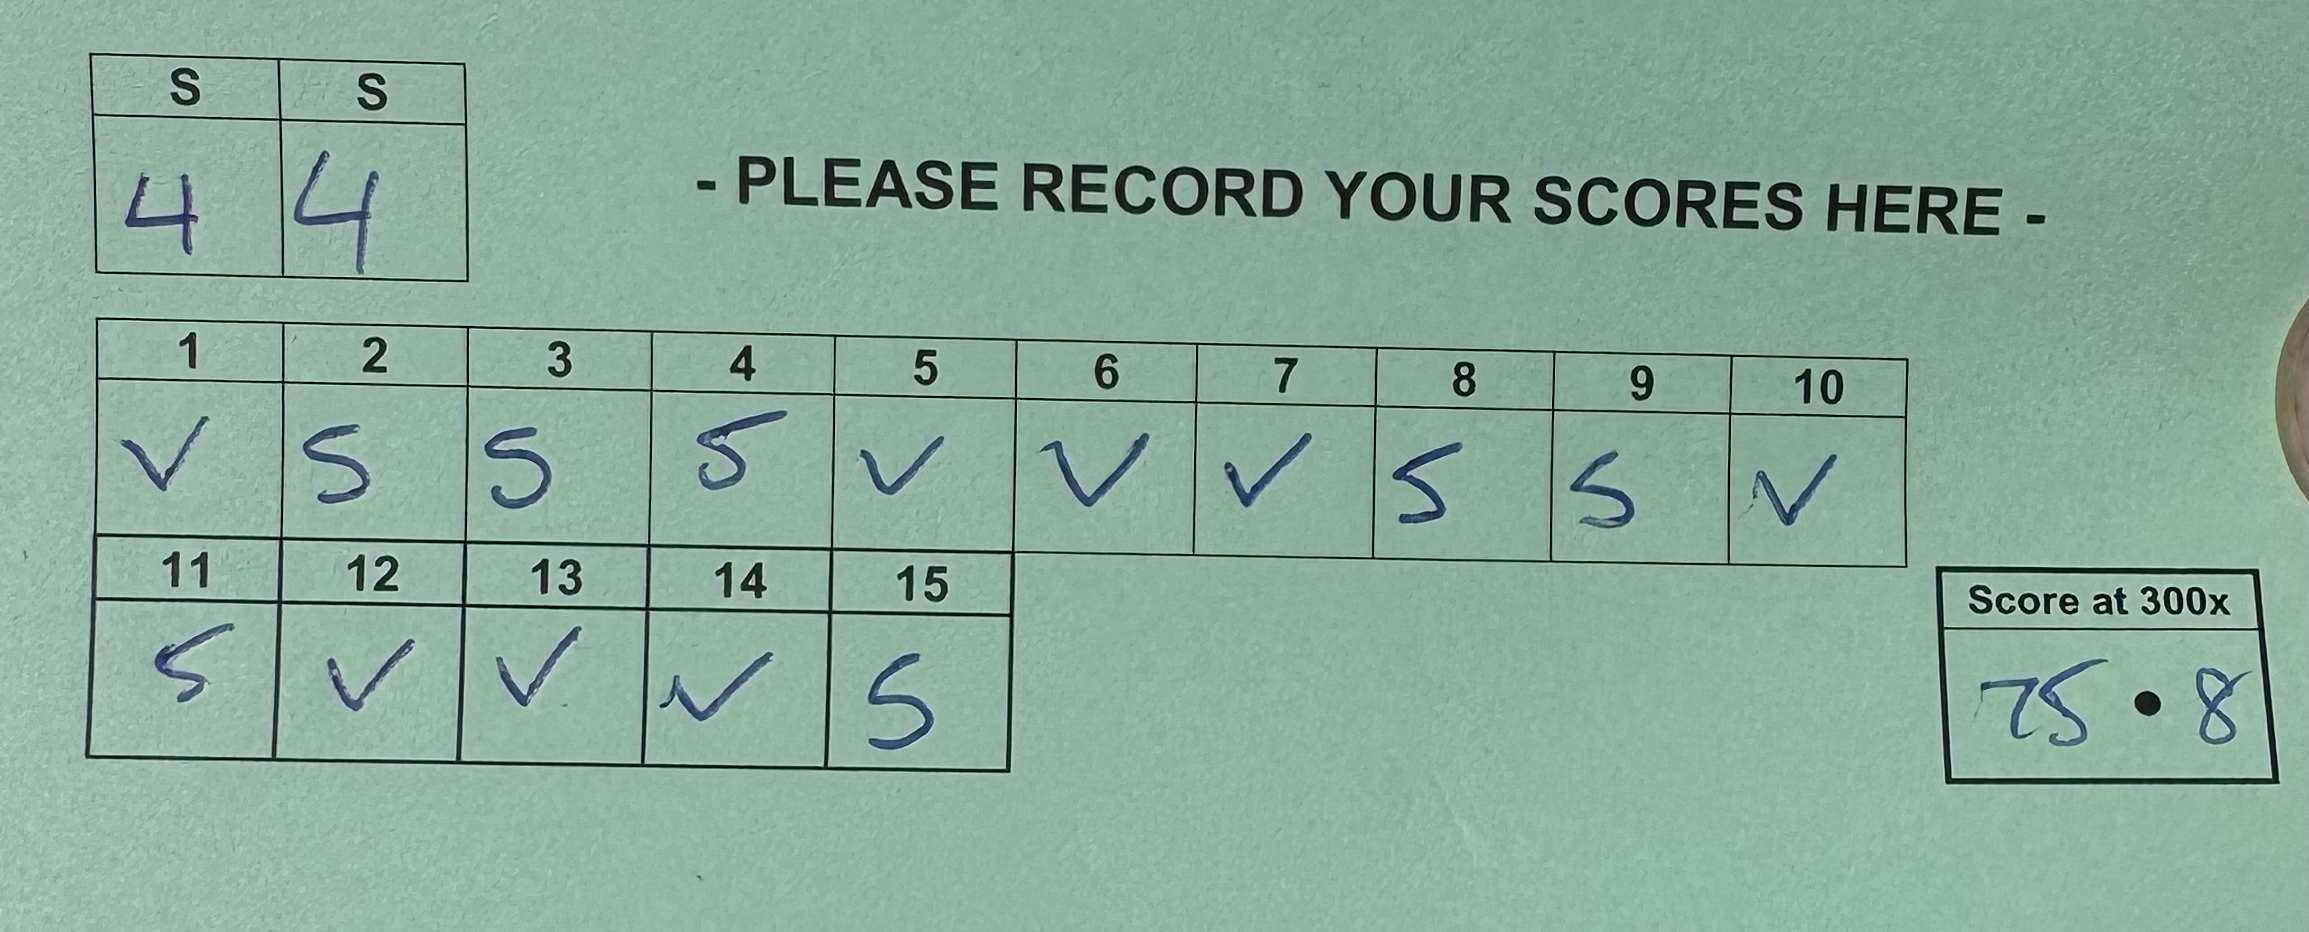 S S
4 4
- PLEASE RECORD YOUR SCORES HERE -
1 2 3 4 5 6 7 8 9 10
V 5 5 5 V V V 5 5 V
11 12 13 14 15
5 V V V 5
Score at 300x
75 • 8